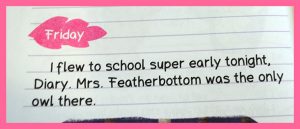 Friday
I flew to school super early tonight,
Diary. Mrs. Featherbottom was the only
owl there.